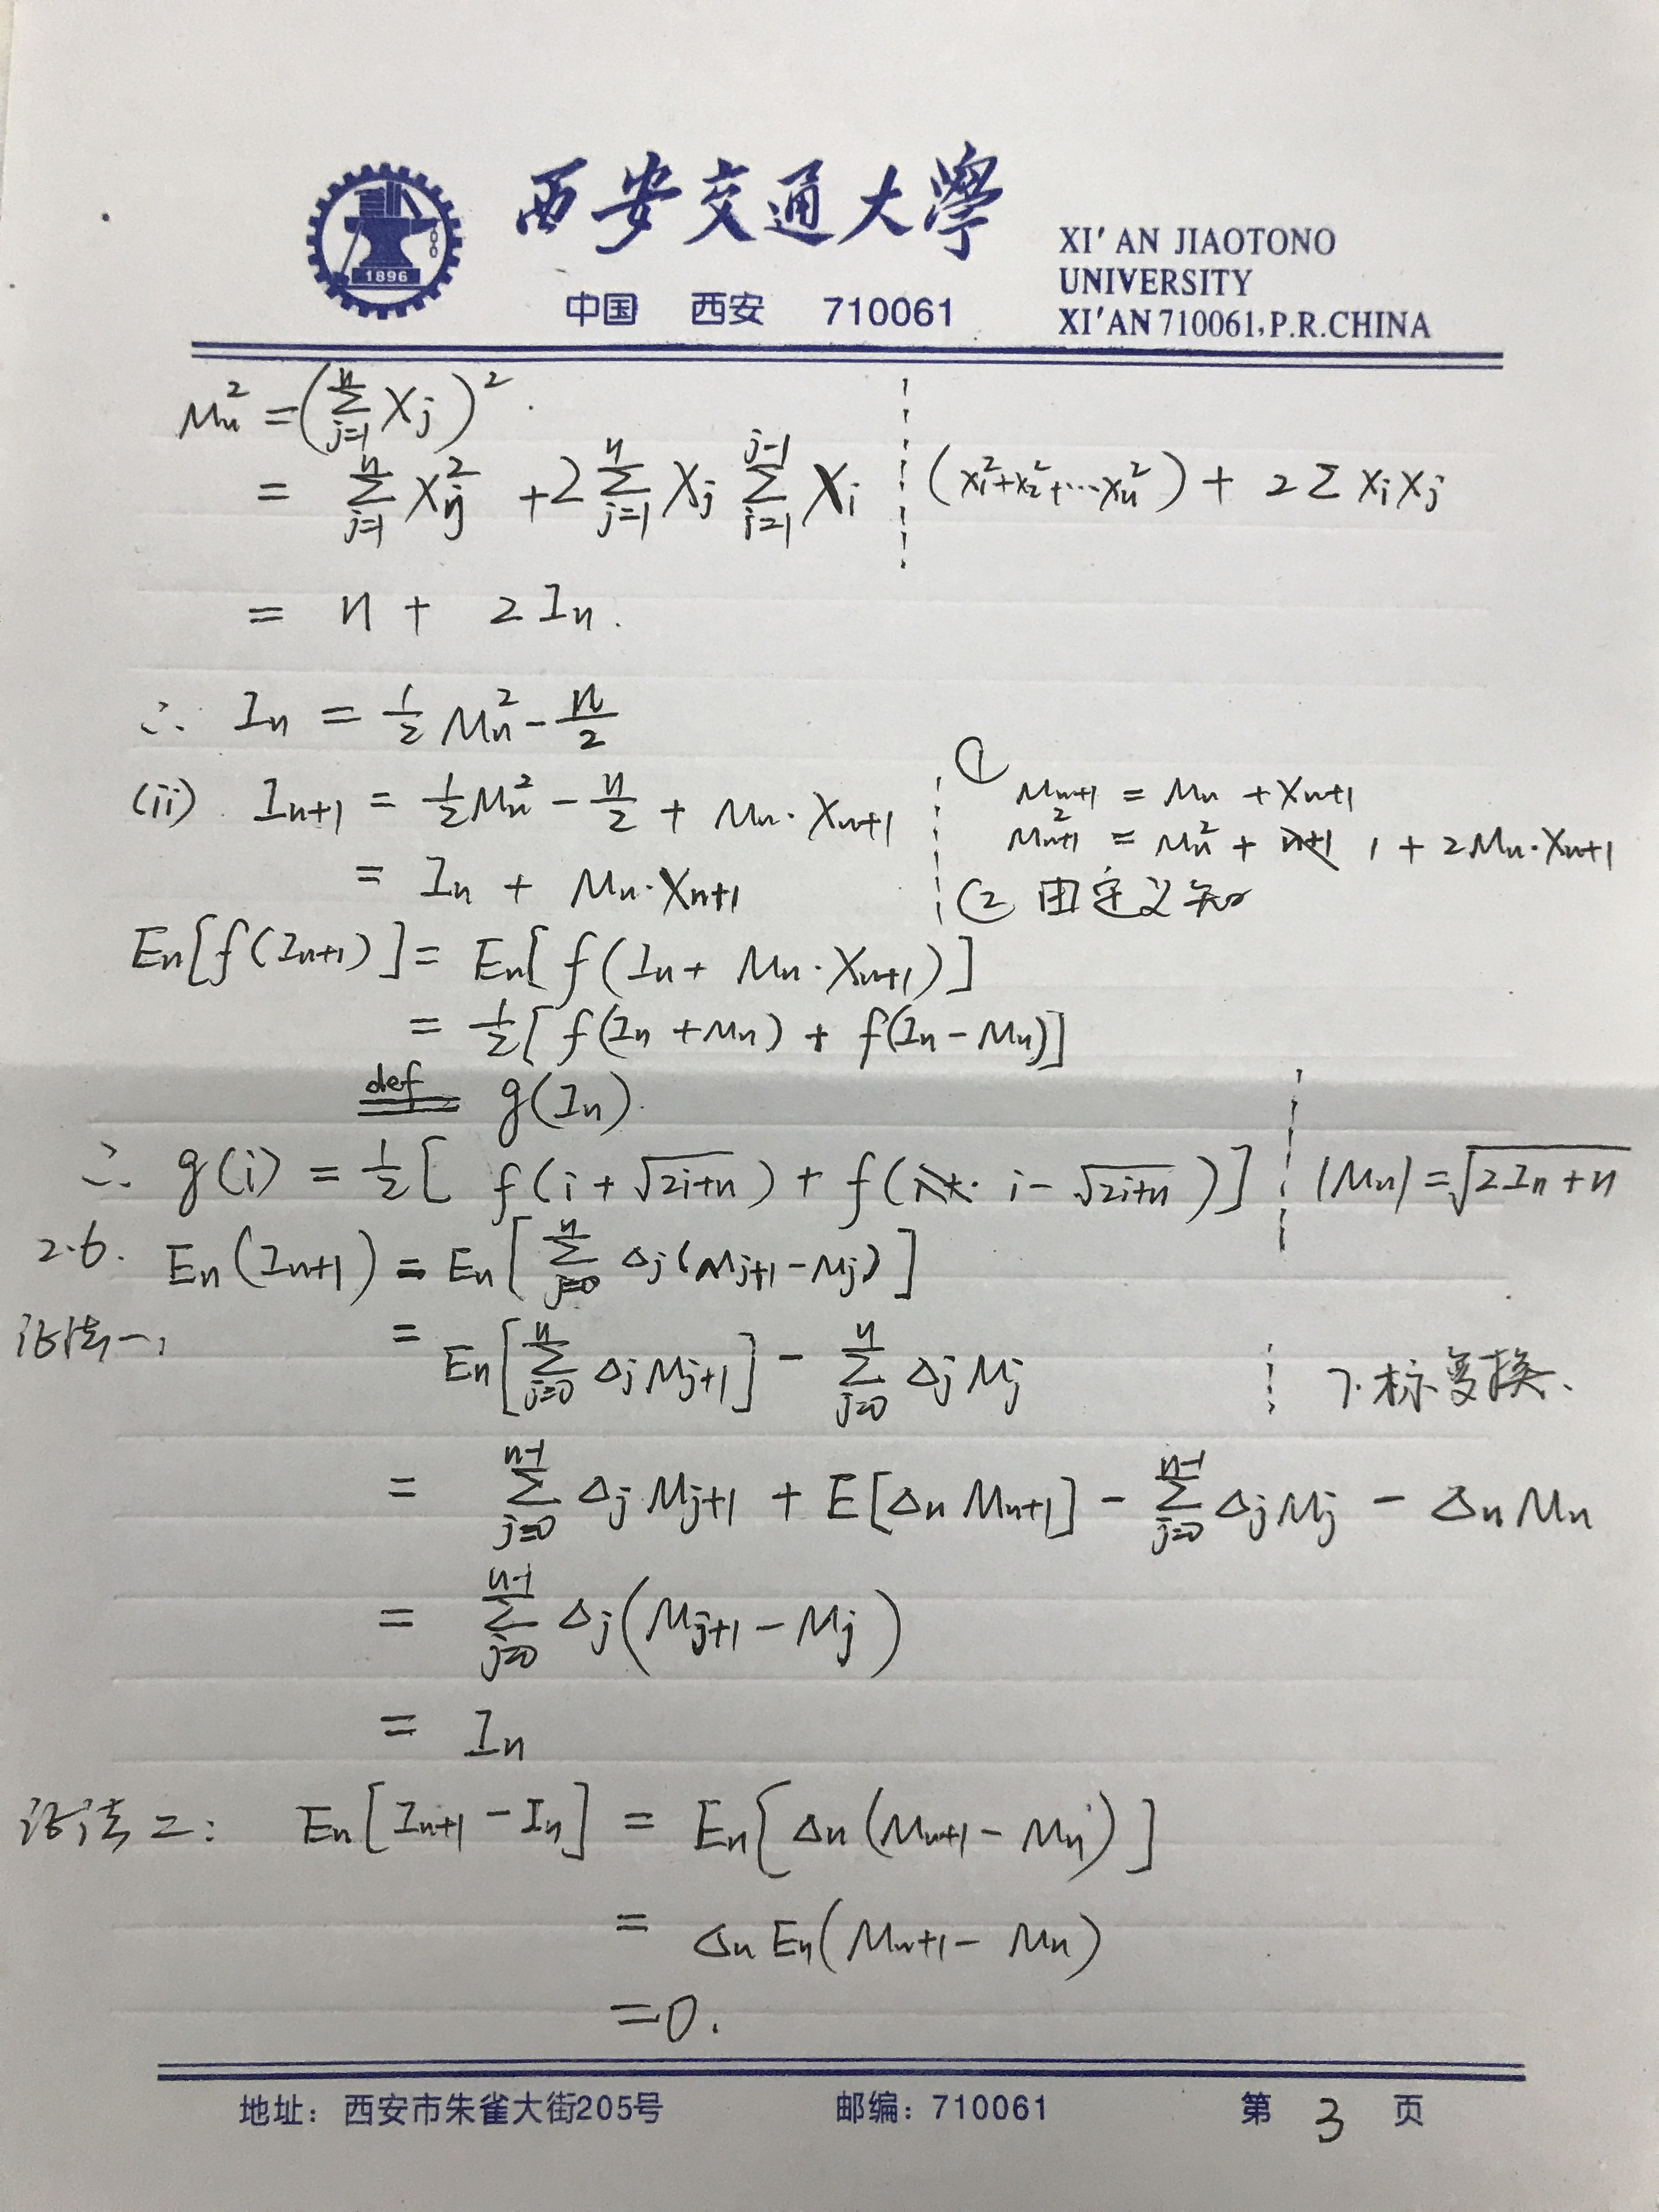 西安交通大學
1896
中国 西安 710061
XI' AN JIAOTONO
UNIVERSITY
XI'AN 710061,P.R.CHINA
Mn² = (∑_{j=1}^{n} Xj)².
= ∑_{j=1}^{n} Xj² + 2∑_{j=1}^{n} Xj ∑_{i=1}^{j-1} Xi ┆ (x₁²+x₂²+⋯xn²) + 2∑ xixj
= n + 2In.
∴ In = ½ Mn² - n/2
(ii) In+1 = ½Mn² - n/2 + Mn·Xn+1
= In + Mn·Xn+1
① Mn+1 = Mn + Xn+1
M²n+1 = Mn² + 1 + 2Mn·Xn+1
② 由定义知
En[f(In+1)] = En[f(In + Mn·Xn+1)]
= ½[f(In+Mn) + f(In-Mn)]
def g(In).
∴ g(i) = ½[f(i+√(2i+n)) + f(i-√(2i+n))] ┆ |Mn|=√(2In+n)
2.6. En(In+1) = En[∑_{j=0}^{n} Δj(Mj+1-Mj)]
证法一: = En[∑_{j=0}^{n} ΔjMj+1] - ∑_{j=0}^{n} ΔjMj ┆ 下标变换、
= ∑_{j=0}^{n-1} ΔjMj+1 + E[ΔnMn+1] - ∑_{j=0}^{n-1} ΔjMj - ΔnMn
= ∑_{j=0}^{n-1} Δj(Mj+1-Mj)
= In
证法二: En[In+1-In] = En[Δn(Mn+1-Mn)]
= ΔnEn(Mn+1-Mn)
=0.
地址：西安市朱雀大街205号 邮编：710061 第 3 页